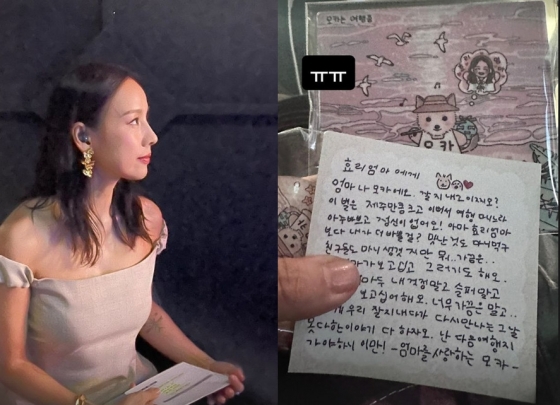 모카는 여행중
ㅠㅠ
모카
효리엄마에게
엄마 나 모카에요. 잘 지내고 있지요?
이 별은 제주만큼 크고 이뻐서 여행 다니느라
아주바쁘고 정신이 없어요! 아마 효리엄마
보다 내가 더 바쁠걸? 맛난것도 마니먹구
친구들도 마니 생겻지만 뭐..가끔은..
마가보고십고 그러기도 해요.
마두 내걱정말고 슬퍼말고
보고십어해요. 너무가끔은 말고..
게우리 잘지내다가 다시만나는 그날
못다한이야기 다 하자요. 난 다음여행지
가야하니 이만! -엄마를 사랑하는 모카-